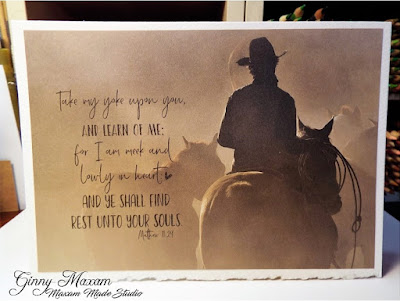 Take my yoke upon you,
AND LEARN OF ME;
for I am meek and
lowly in heart
AND YE SHALL FIND
REST UNTO YOUR SOULS.
Matthew 11:29
Ginny Maxam
Maxam Made Studio